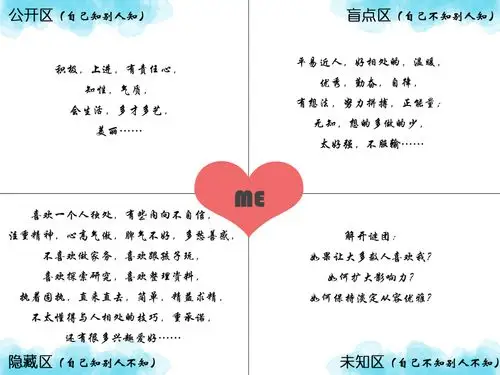 公开区（自己知别人知）
积极，上进，有责任心，
知性，气质，
会生活，多才多艺，
美丽……
盲点区（自己不知别人知）
平易近人，好相处的，温暖，
优秀，勤奋，自律，
有想法，努力拼搏，正能量；
无知，想的多做的少，
太好强，不服输……
ME
喜欢一个人独处，有些内向不自信，
注重精神，心高气傲，脾气不好，多愁善感，
不喜欢做家务，喜欢跟孩子玩，
喜欢探索研究，喜欢整理资料，
执着固执，直来直去，简单，精益求精，
不太懂得与人相处的技巧，重承诺，
还有很多兴趣爱好……
隐藏区（自己知别人不知）
解开谜团：
如果让大多数人喜欢我？
如何扩大影响力？
如何保持淡定从容优雅？
未知区（自己不知别人不知）